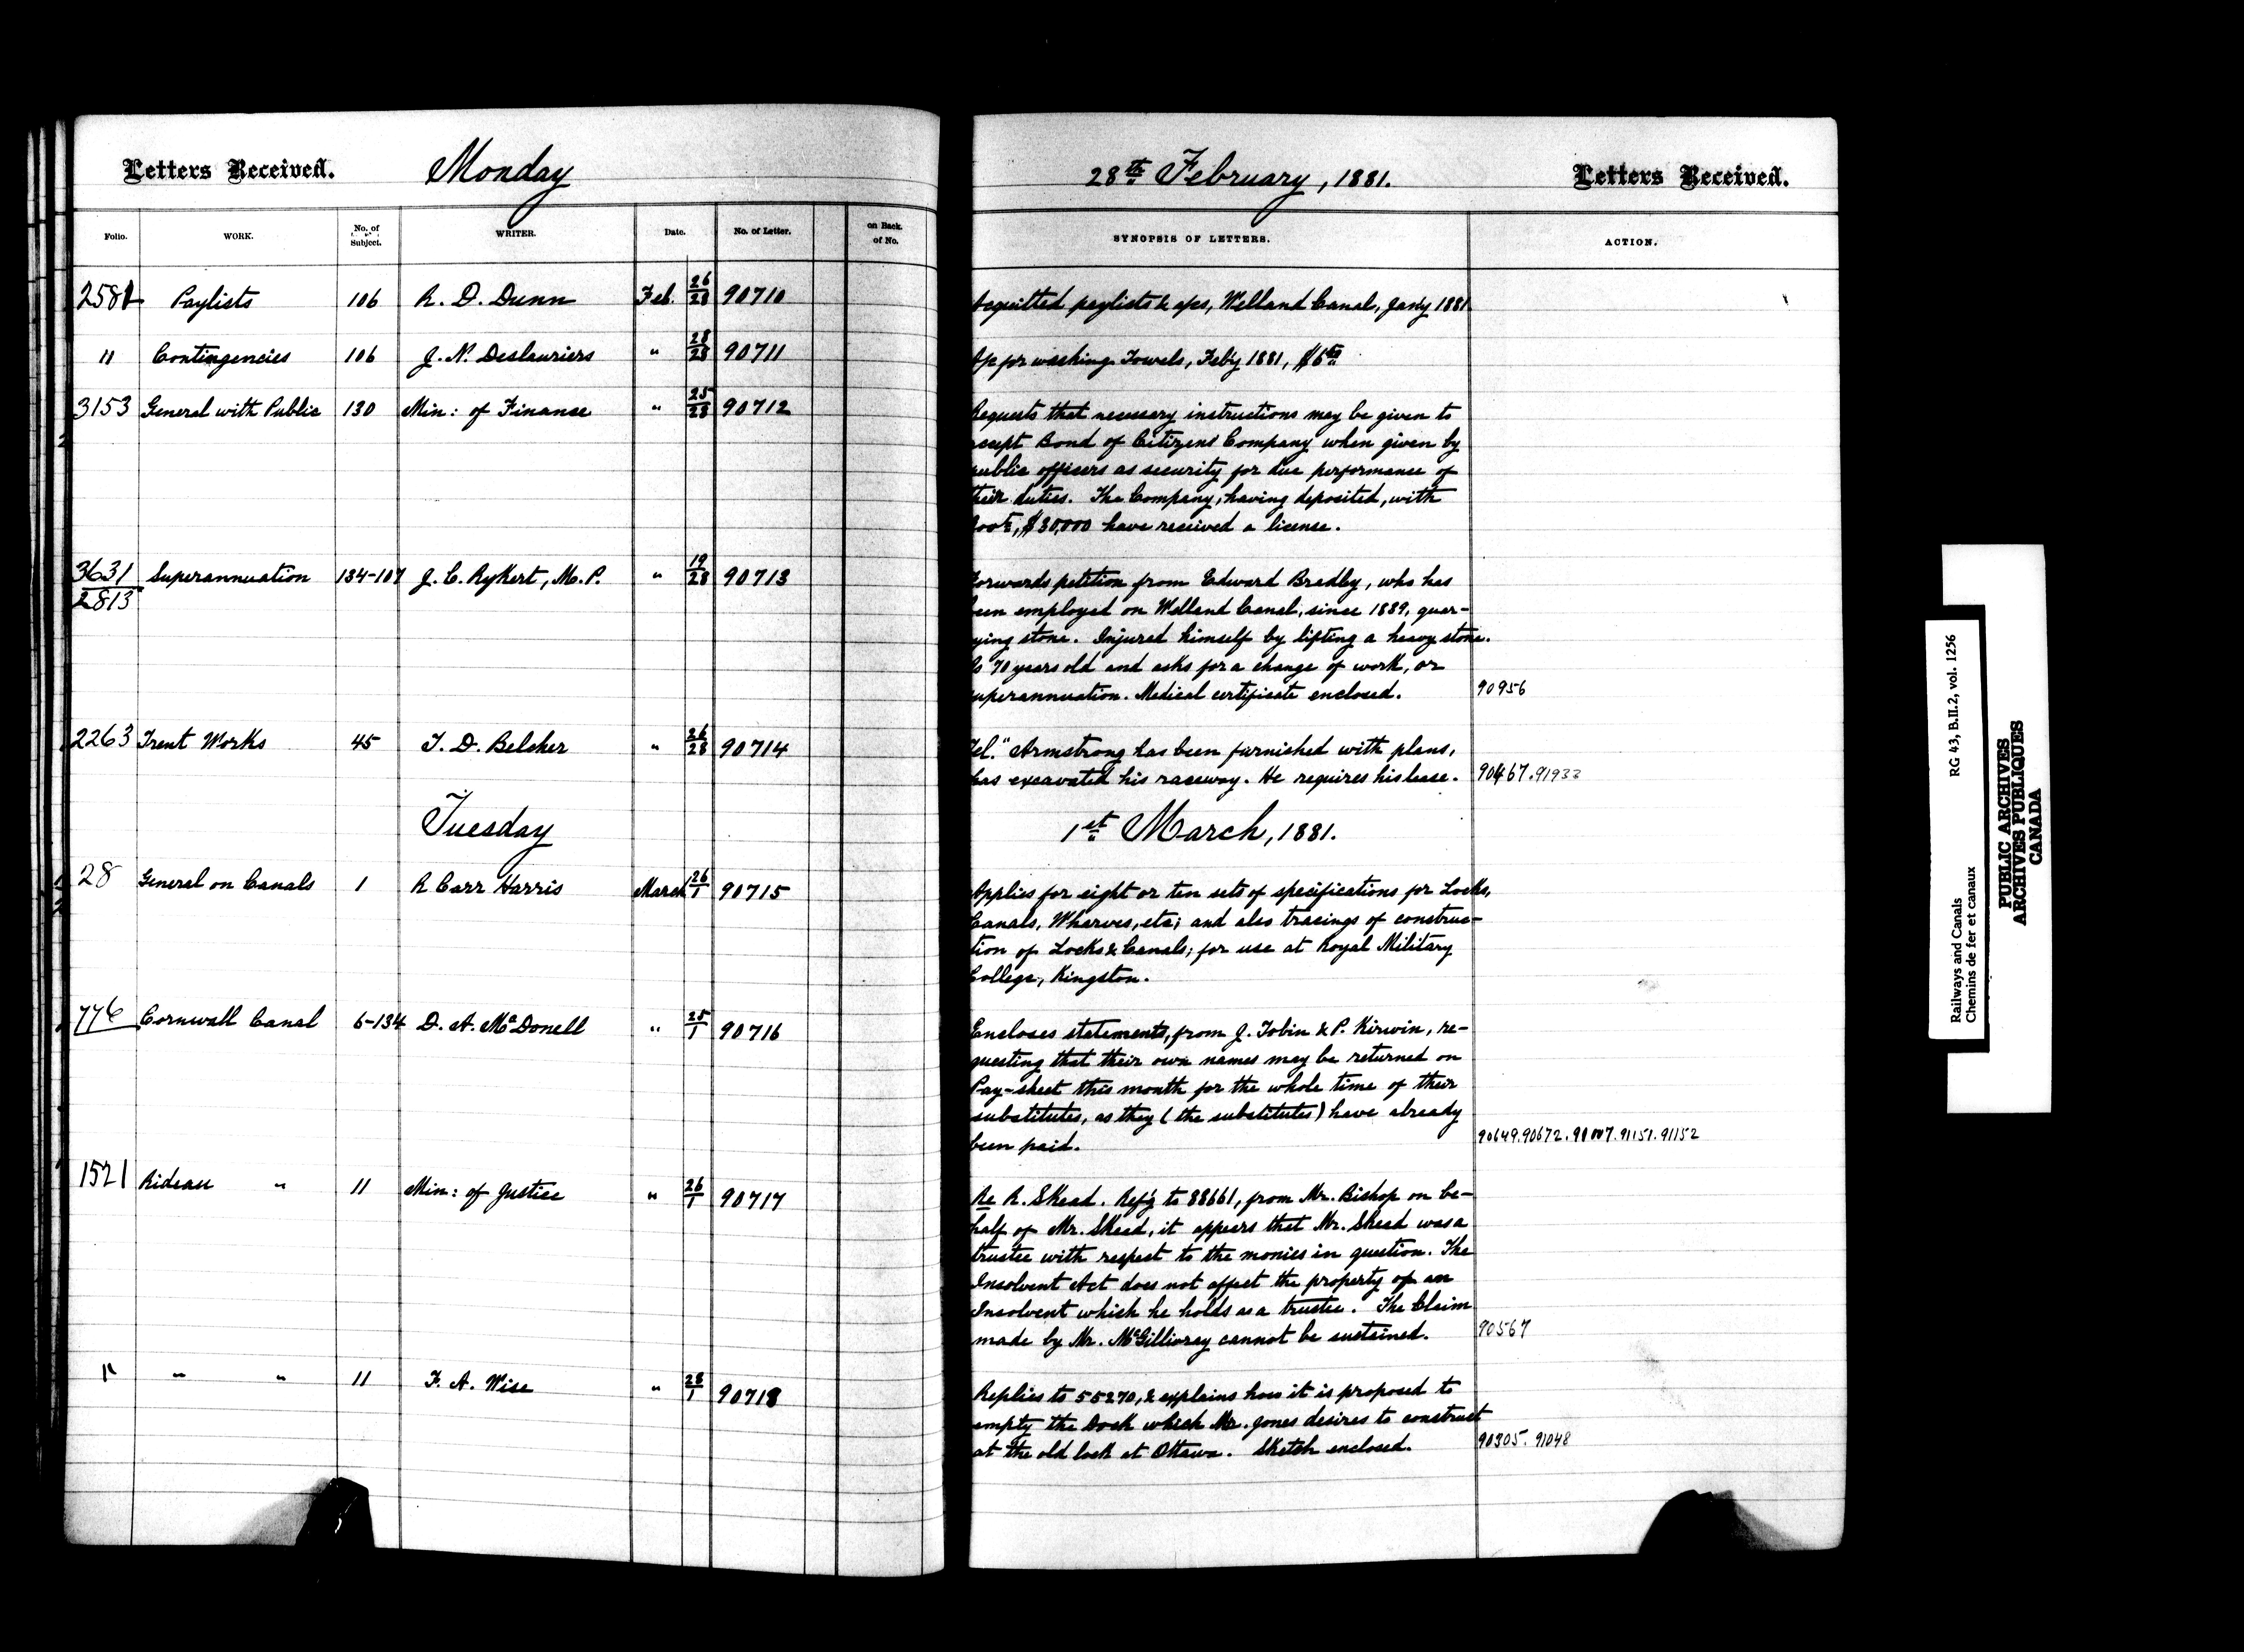 Letters Received. Monday
Folio. WORK. No. of Subject. WRITER. Date. No. of Letter. on Back. of No.
2581 Paylists 106 R. D. Dunn Feb. 26/28 90710
" Contingencies 106 J. N. Deslauriers " 28/28 90711
3153 General with Public 130 Min: of Finance " 25/28 90712
3631 Superannuation 134-107 J. C. Rykert, M.P. " 19/28 90713
2813
2263 Trent Works 45 T. D. Belcher " 26/28 90714
Tuesday
28 General on Canals 1 R Carr Harris March 26/1 90715
776 Cornwall Canal 6-134 D. A. McDonell " 25/1 90716
1521 Rideau " 11 Min: of Justice " 26/1 90717
" " " 11 F. A. Wise " 28/1 90718
28th February, 1881. Letters Received.
SYNOPSIS OF LETTERS. ACTION.
Acquitted paylists & a/cs, Welland Canal, Jan'y 1881.
A/c for washing Towels, Feb'y 1881,
Requests that necessary instructions may be given to
accept Bond of Citizens' Company when given by
public officers as security for due performance of
their duties. The Company, having deposited, with
Govt, $30,000 have received a license.
Forwards petition from Edward Bradley, who has
been employed on Welland Canal, since 1839, quar-
rying stone. Injured himself by lifting a heavy stone.
Is 70 years old and asks for a change of work, or
superannuation. Medical certificate enclosed. 90956
Tel." Armstrong has been furnished with plans,
has excavated his raceway. He requires his lease. 90467. 91933
1st March, 1881.
Applies for eight or ten sets of specifications for Locks,
Canals, Wharves, etc; and also tracings of construc-
tion of Locks & Canals; for use at Royal Military
College, Kingston.
Encloses statements, from J. Tobin & P. Kirwin, re-
questing that their own names may be returned on
Pay-sheet this month for the whole time of their
substitutes, as they (the substitutes) have already
been paid. 90649. 90672. 91007. 91151. 91152
Re R. Skead. Ref'g to 88661, from Mr. Bishop on be-
half of Mr. Skead, it appears that Mr. Skead was a
trustee with respect to the monies in question. The
Insolvent Act does not affect the property of an
Insolvent which he holds as a trustee. The Claim
made by Mr. McGillivray cannot be sustained. 90567
Replies to 55270, & explains how it is proposed to
empty the Dock which Mr. Jones desires to construct
at the old lock at Ottawa. Sketch enclosed. 90305. 91048
Railways and Canals RG 43, B.II.2, vol. 1256
Chemins de fer et canaux
PUBLIC ARCHIVES
ARCHIVES PUBLIQUES
CANADA